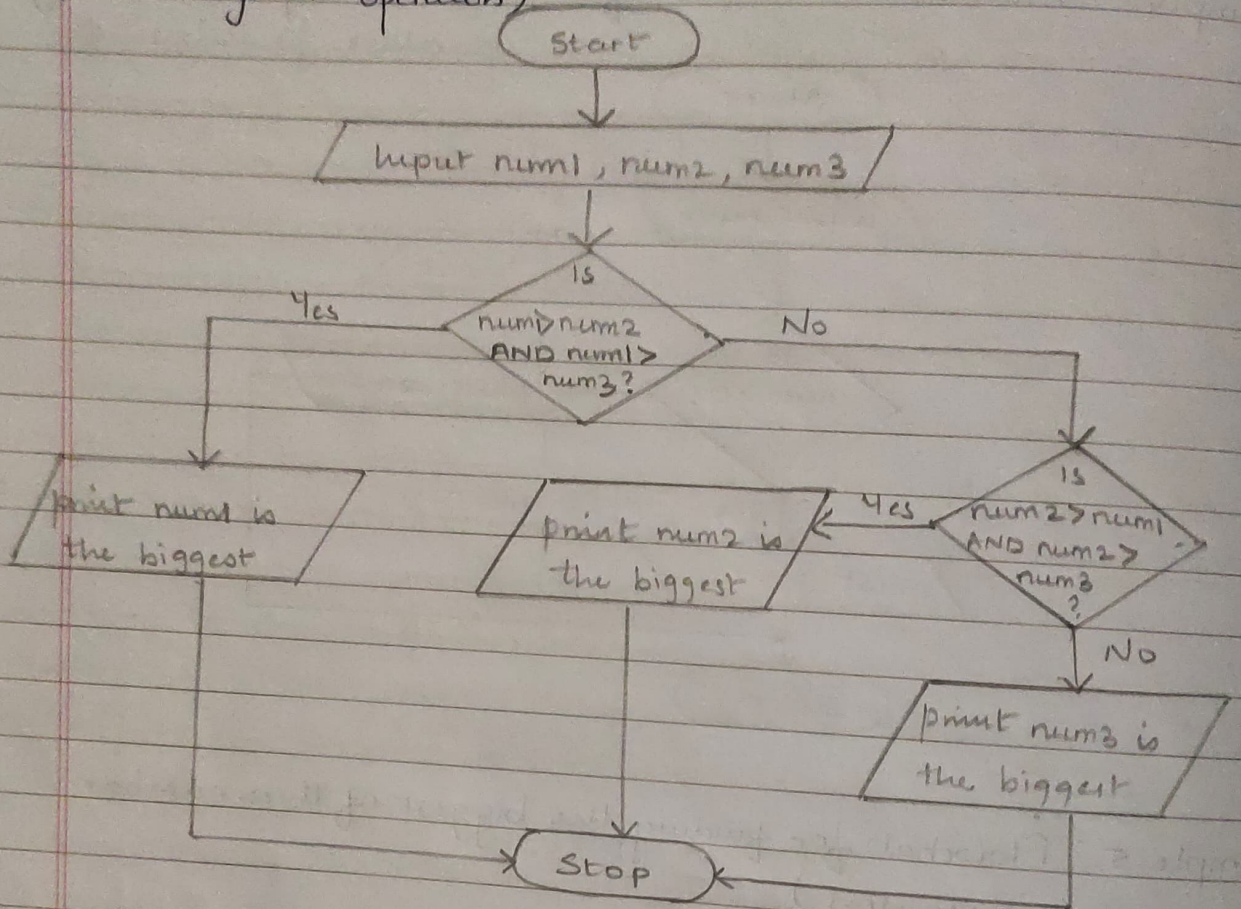 operation
Start
Input num1, num2, num3
Is
num1>num2
AND num1>
num3?
Yes
No
print num1 is
the biggest
print num2 is
the biggest
Yes
Is
num2>num1
AND num2>
num3
?
No
print num3 is
the biggest
Stop